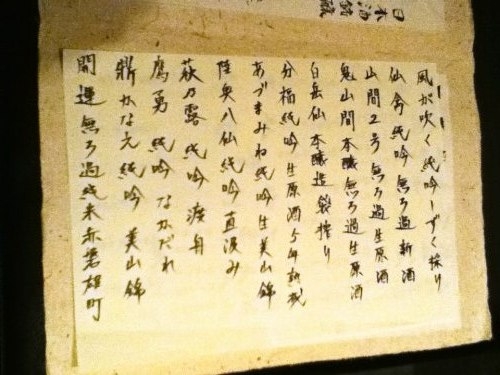 日本酒銘蔵
風が吹く純吟しずく採り
仙禽純吟無ろ過新酒
山間2号無ろ過生原酒
鬼山間本醸無ろ過生原酒
白岳仙本醸造袋搾り
分福純吟生原酒5年熟成
あづまみね純吟生美山錦
陸奥八仙純吟直汲み
萩乃露純吟渡舟
鷹勇純吟なかだれ
鼎かなえ純吟美山錦
開運無ろ過純米赤磐雄町